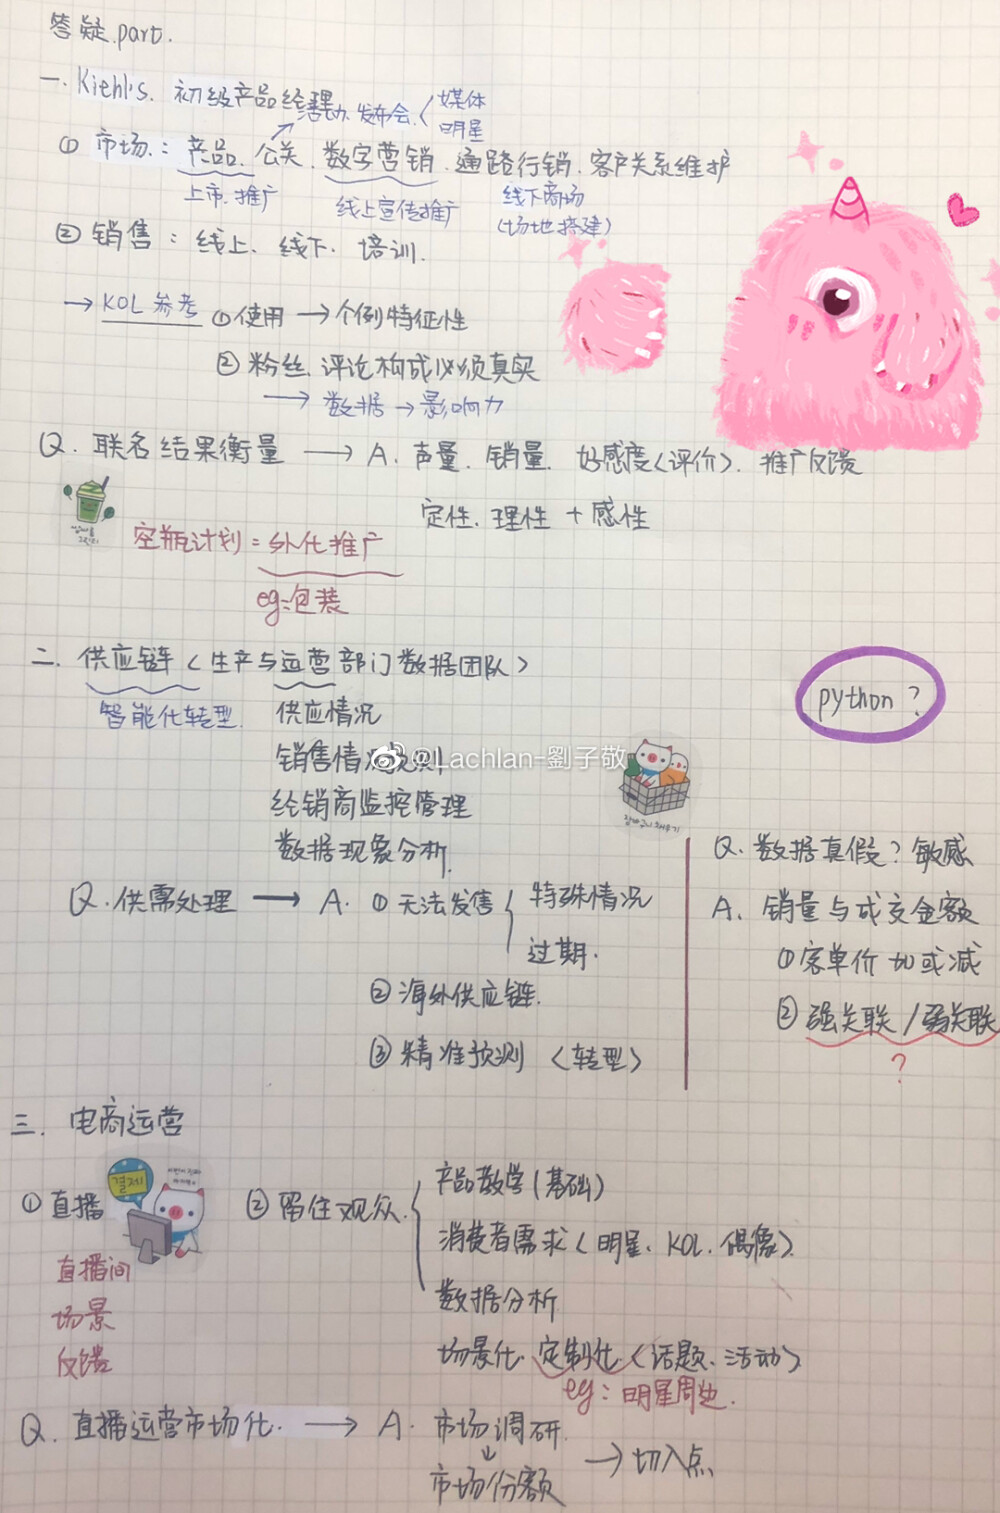 答疑.part.
一. Kiehl's. 初级产品经理
活动. 发布会.〈 媒体
明星
① 市场.: 产品. 公关. 数字营销. 通路行销. 客户关系维护
上市. 推广
线上宣传推广
线下商场
(场地搭建)
② 销售: 线上. 线下. 培训.
→ KOL 参考 ①使用 → 个例特征性
② 粉丝. 评论构成必须真实
→ 数据 → 影响力
Q. 联名结果衡量 → A. 声量. 销量. 好感度(评价). 推广反馈
定性. 理性 + 感性
空瓶计划 = 外化推广
eg:包装
二. 供应链 (生产与运营部门数据团队)
智能化转型.
供应情况
python ?
销售情况
@Lachlan-劉子敬
经销商监控管理
数据现象分析.
Q. 供需处理 → A. ① 无法发售 { 特殊情况
过期.
② 海外供应链.
③ 精准预测 (转型)
Q. 数据真假? 敏感
A. 销量与成交金额
①客单价 加或减
② 强关联 / 弱关联
?
三. 电商运营
결제
① 直播
直播间
场景
反馈
② 留住观众. { 产品教学(基础)
消费者需求 (明星. KOL. 偶像).
数据分析
场景化. 定制化 (话题. 活动)
eg: 明星周边.
Q. 直播运营市场化. → A. 市场调研.
↓
市场份额
→ 切入点